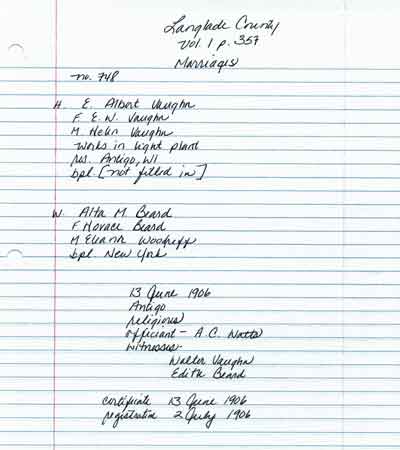 Langlade County
Vol. 1 p. 357
Marriages
no. 748
H. E. Albert Vaughn
F. E. W. Vaughn
M Helen Vaughn
works in light plant
res. Antigo, WI
bpl. [not filled in]
W. Alta M. Beard
F Horace Beard
M Eleanor Woodruff
bpl. New York
13 June 1906
Antigo
religious
officiant - A.C. Watts
witnesses-
Walter Vaughn
Edith Beard
certificate 13 June 1906
registration 2 July 1906